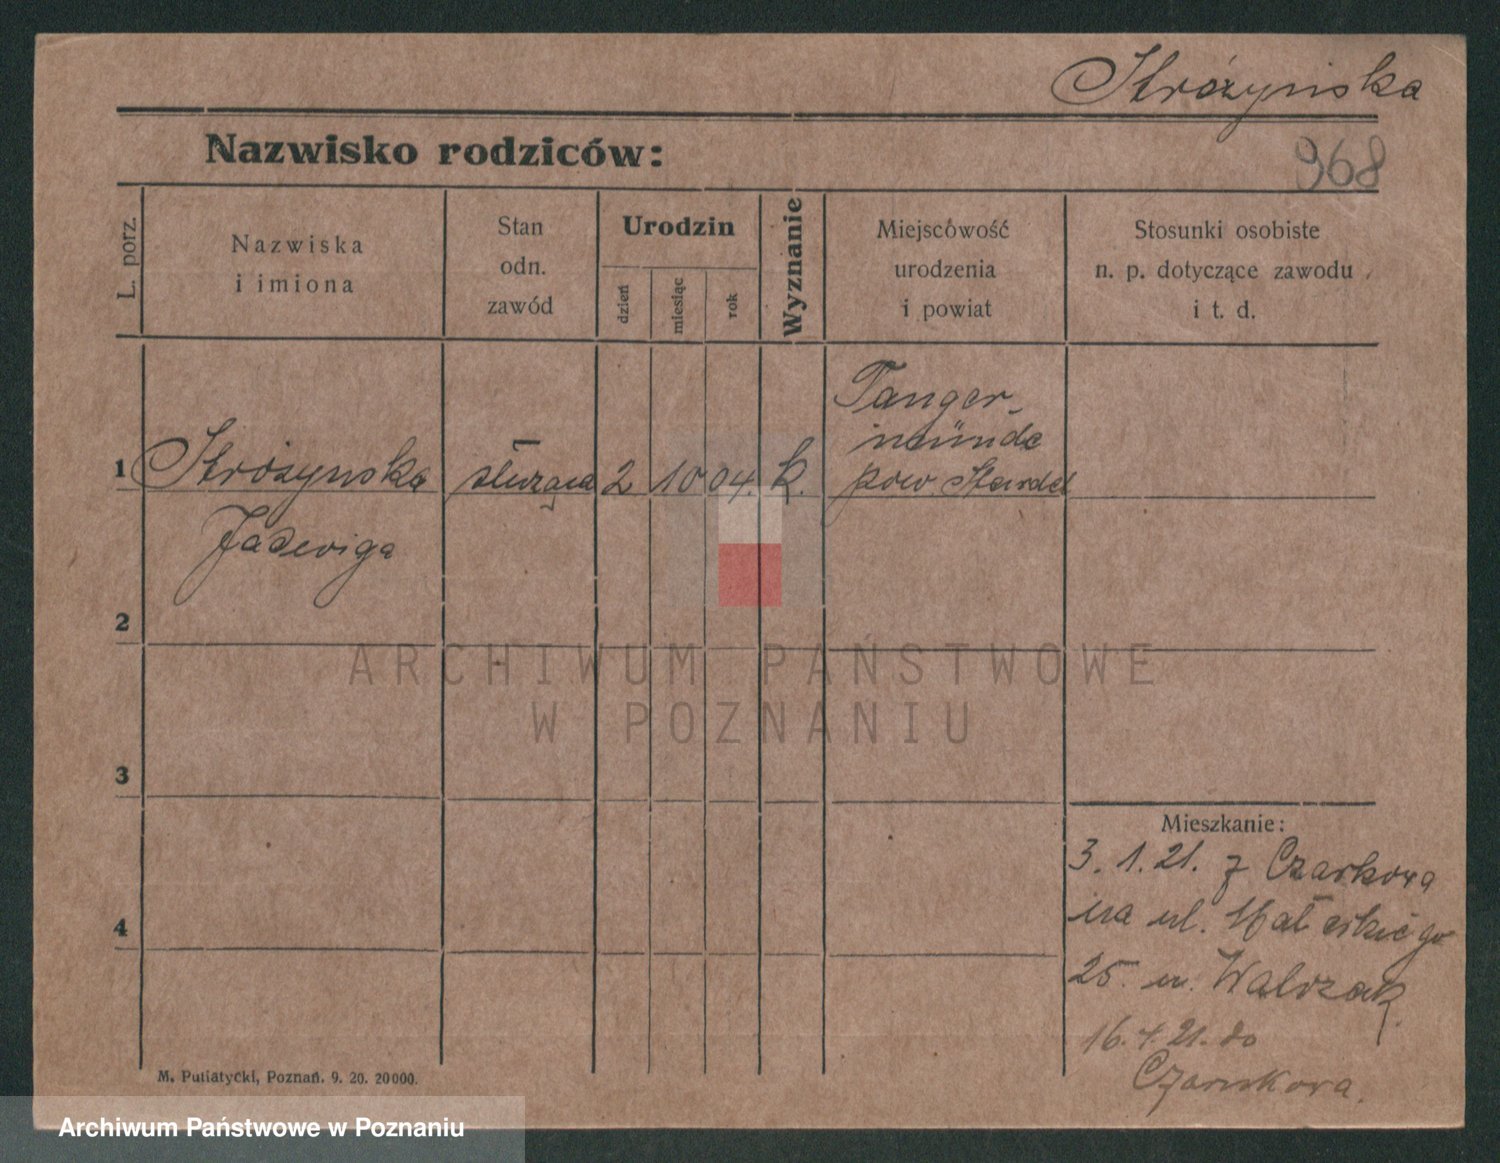 Stróżyńska
Nazwisko rodziców:
968
L. porz.
Nazwiska
i imiona
Stan
odn.
zawód
Urodzin
dzień
miesiąc
rok
Wyznanie
Miejscowość
urodzenia
i powiat
Stosunki osobiste
n. p. dotyczące zawodu
i t. d.
Tanger-
münde
1 Stróżynska służąca 2 10 04. k. pow. Stendal
Jadwiga
2
ARCHIWUM PAŃSTWOWE
W POZNANIU
3
Mieszkanie:
3. 1. 21. z Czarkowa
4
na ul.
25. u. Walczak
16. 4. 21. do
Czarnkowa.
M. Putiatycki, Poznań. 9. 20. 20000.
Archiwum Państwowe w Poznaniu